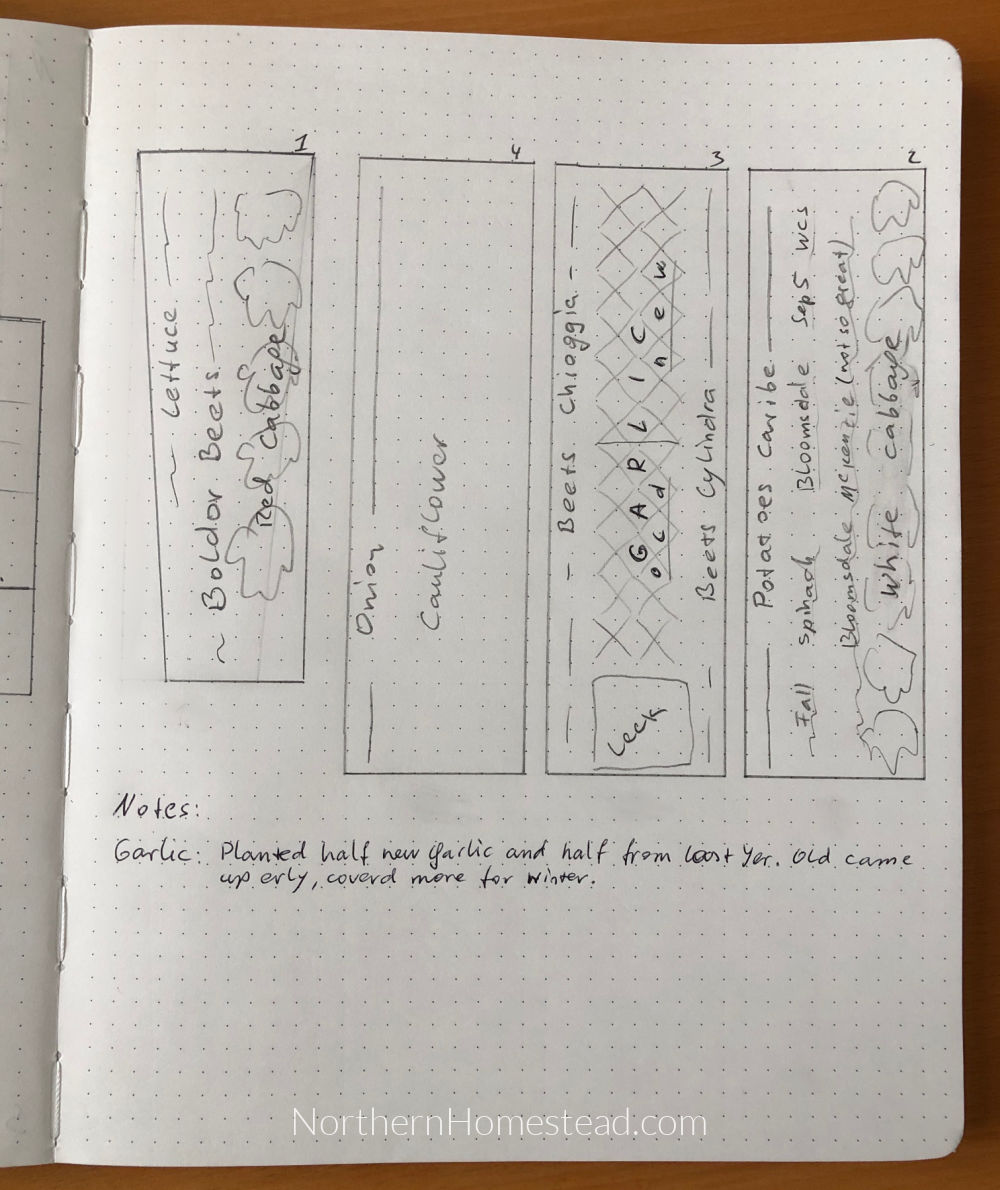 1
~ Lettuce
~ Boldor Beets
Red Cabbage
4
Onion
Cauliflower
3
Beets Chioggia
GARLIC
old new
Beets Cylindra
Leek
2
Potatoes Caribe
Fall spinach Bloomsdale Sep 5 WCS
Bloomsdale Mckenzie (not so great)
White cabbage
Notes:
Garlic: Planted half new garlic and half from last yer. Old came
up erly, coverd more for winter.
NorthernHomestead.com